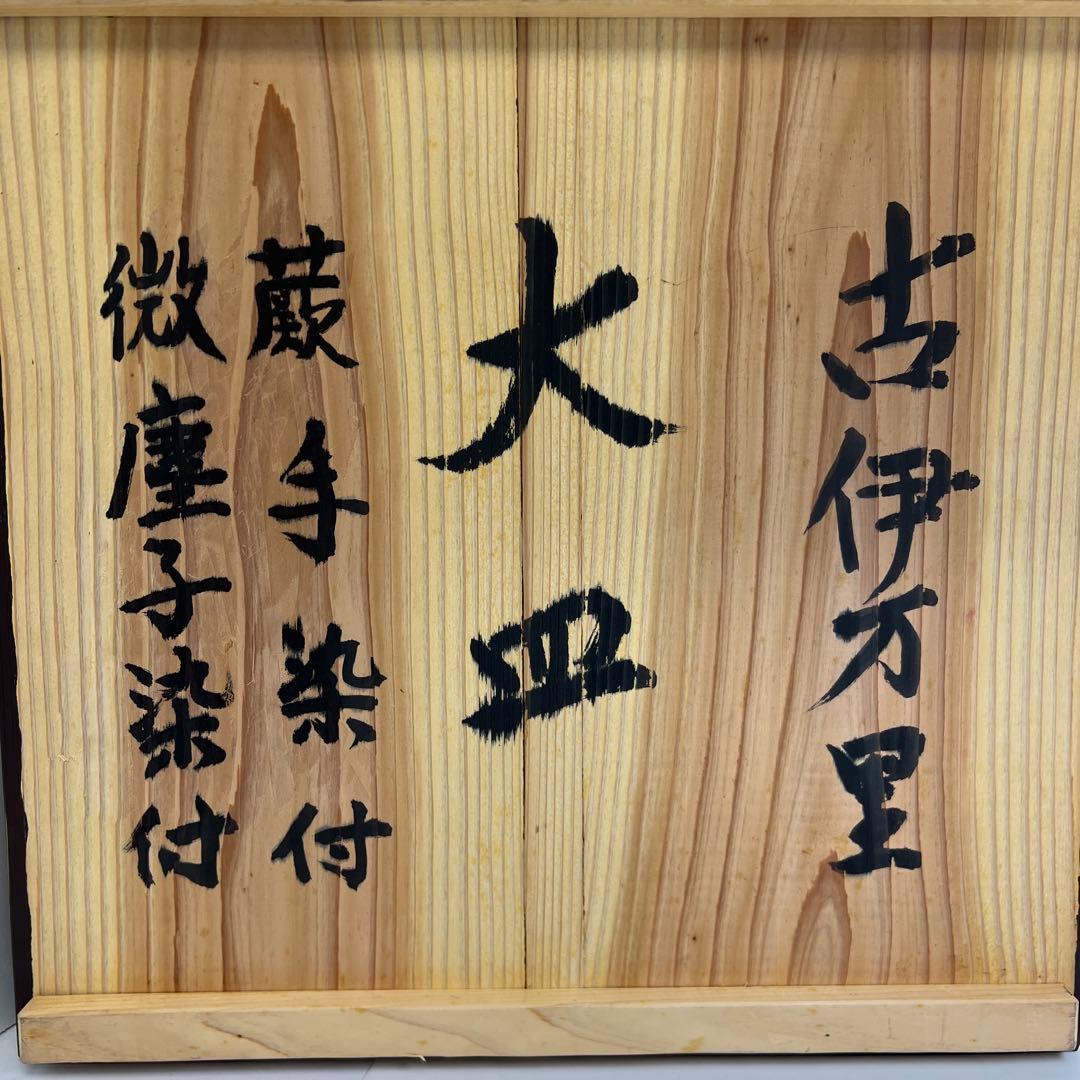 古伊万里
大皿
蕨手染付
微塵子染付